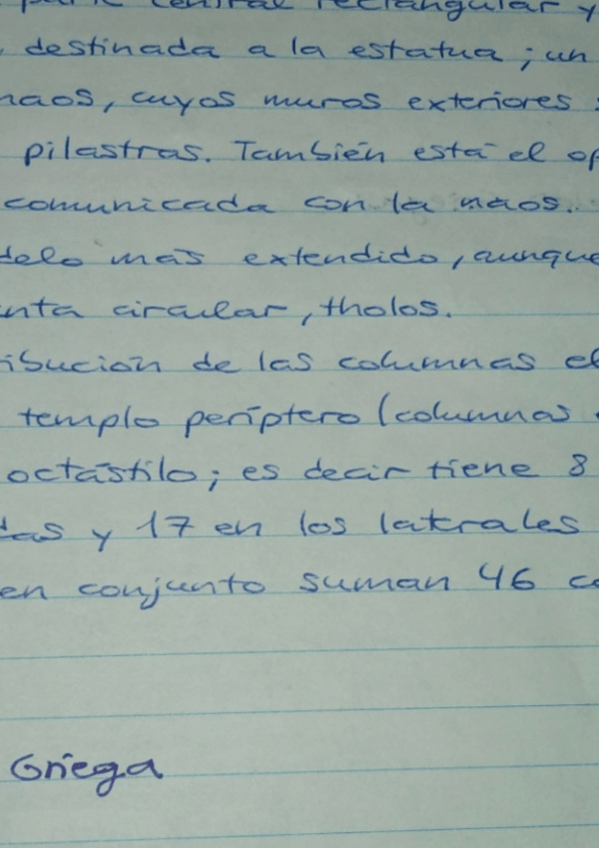 central rectangular y
destinada a la estatua; un
naos, cuyos muros exteriores
pilastras. También está el
comunicada con la naos.
más extendido, aunque
circular, tholos.
de las columnas
templo períptero (columnas
octástilo; es decir tiene 8
y 17 en los laterales
en conjunto suman 46
Griega